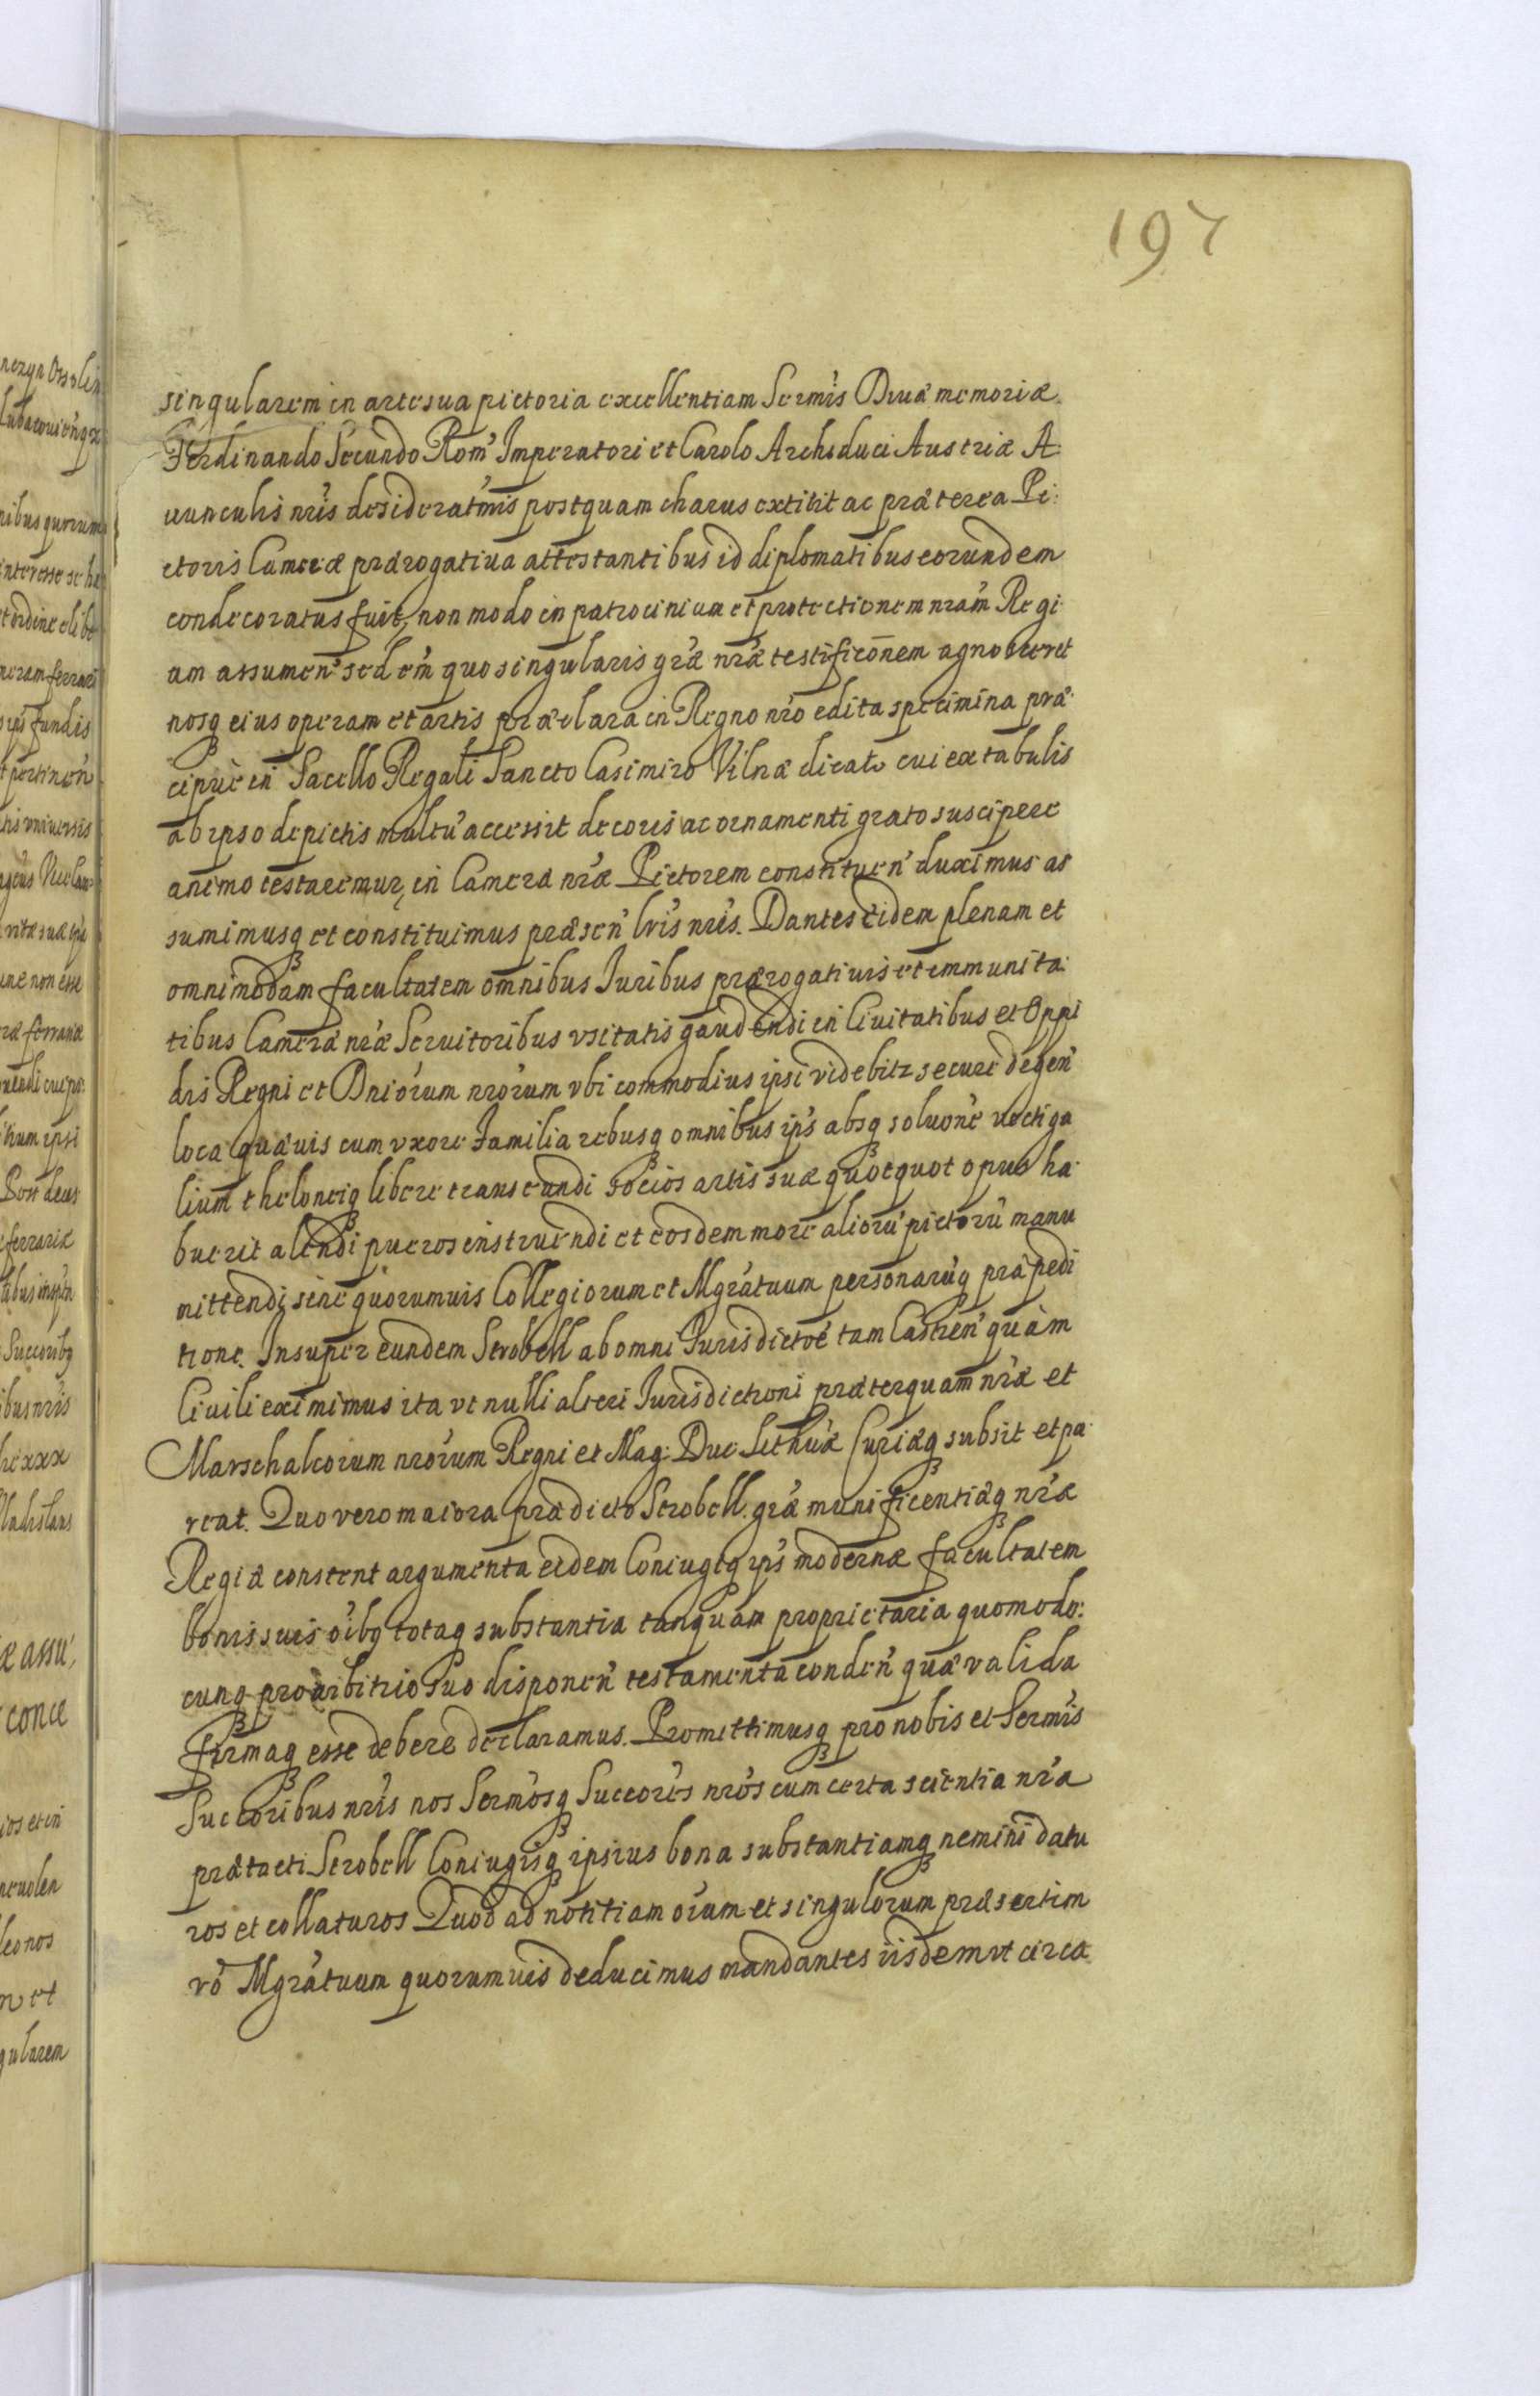 197
singularem in arte sua pictoria excellentiam Sermis Divæ memoriæ
Ferdinando Secundo Rom' Imperatori et Carolo Archiduci Austriæ A:
uunculis nris desideratmis postquam charus extitit ac præterea Pi:
ctoris Cameræ prærogatiua attestantibus id diplomatibus eorundem
condecoratus fuit, non modo in patrocinium et protectionem nram Regi
am assumen' sed em quo singularis græ nræ testificonem agnosceret
nosq eius operam et artis præclara in Regno nro edita specimina præ
cipuè in Sacello Regali Sancto Casimiro Vilnæ dicato cui ex tabulis
ab ipso depictis multu' accessit decoris ac ornamenti grato suscipere
animo testaremur, in Cameræ nræ Pictorem constituen' duximus as
sumimusq et constituimus præsen' lris nris. Dantes eidem plenam et
omnimodam facultatem omnibus Iuribus prærogatiuis et immunita:
tibus Cameræ nræ Seruitoribus vsitatis gaudendi in Ciuitatibus et Oppi
dis Regni et Dniorum nrorum vbi commodius ipsi videbitr secure degen'
loca quæuis cum vxore Familia rebusq omnibus ips absq soluone vectiga
lium theloneiq libere transeundi socios artis suæ quotquot opus ha:
buerit alendi pueros instruendi et eosdem more alioru' pictoru' manu
mittendi, sine quorumuis Collegiorum et Mgratuum personaruq præpedi
tione. Insuper eundem Strobell ab omni Iurisdictoe tam Castren' quàm
Ciuili eximimus ita vt nulli alteri Iurisdictioni præterquam nræ et
Marschalcorum nrorum Regni et Mag: Duc: Lithuæ Curiæq subsit et pa:
reat. Quo vero maiora prædicto Strobell. græ munificentiæq nræ
Regiæ constent argumenta eidem Coniugiq ips modernæ facultatem
bonis suis oibq totaq substantia tanquam proprietaria quomodo:
cunq pro aribitrio suo disponen' testamenta conden' quæ valida
firmaq esse debere declaramus. Promittimusq pro nobis et Sermis
Succoribus nris nos Sermosq Succores nros cum certa scientia nra
prætacti Strobell Coniugisq ipsius bona substantiamq nemini datu
ros et collaturos Quod ad notitiam oium et singulorum præsertim
vo Mgratuum quorumuis deducimus mandantes iisdem vt circa